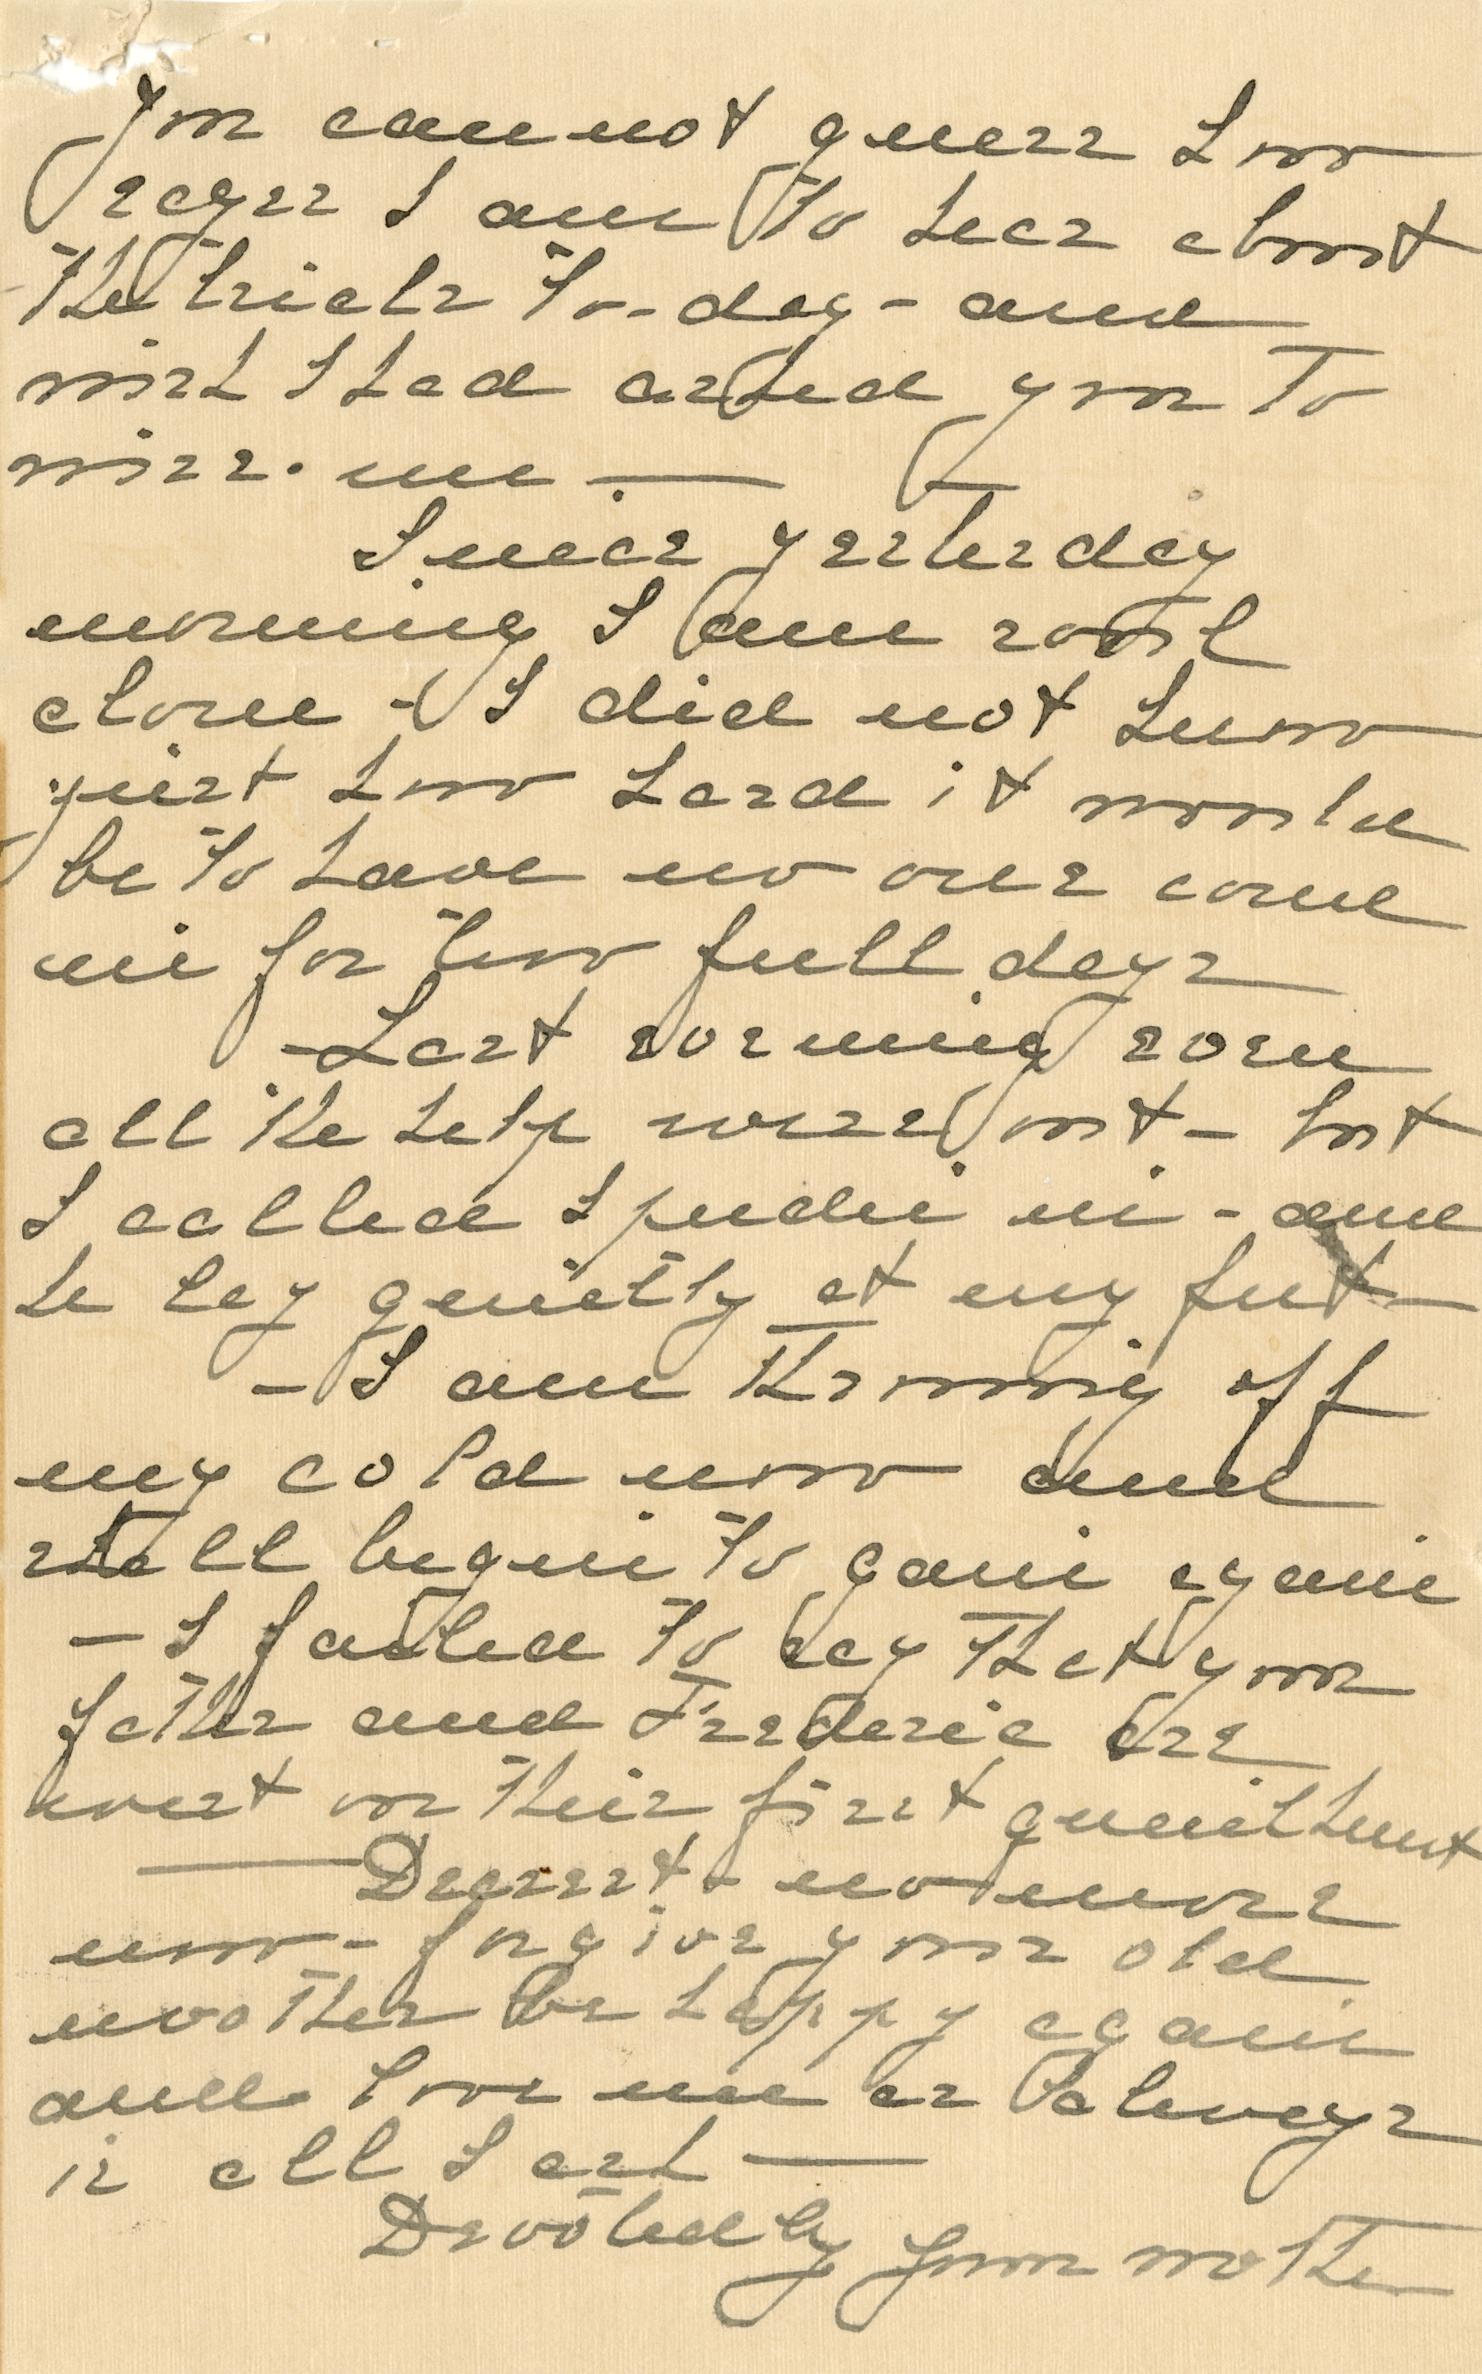 You cannot guess how
eager I am to hear about
the trials to-day - and
wish I had asked you to
wire me —
Since yesterday
morning I am
alone - I did not know
just how hard it would
be to have no one come
in for two full days
- Last evening some
all the help were out - but
I called in - and
he lay quietly at my feet -
- I am throwing off
my cold now and
shall begin to gain again
- I failed to say that your
father and Frederic are
west on their first quail hunt
— Dearest - no more
now - forgive your old
mother be happy again
and love me as always
is all I ask —
Devotedly your mother